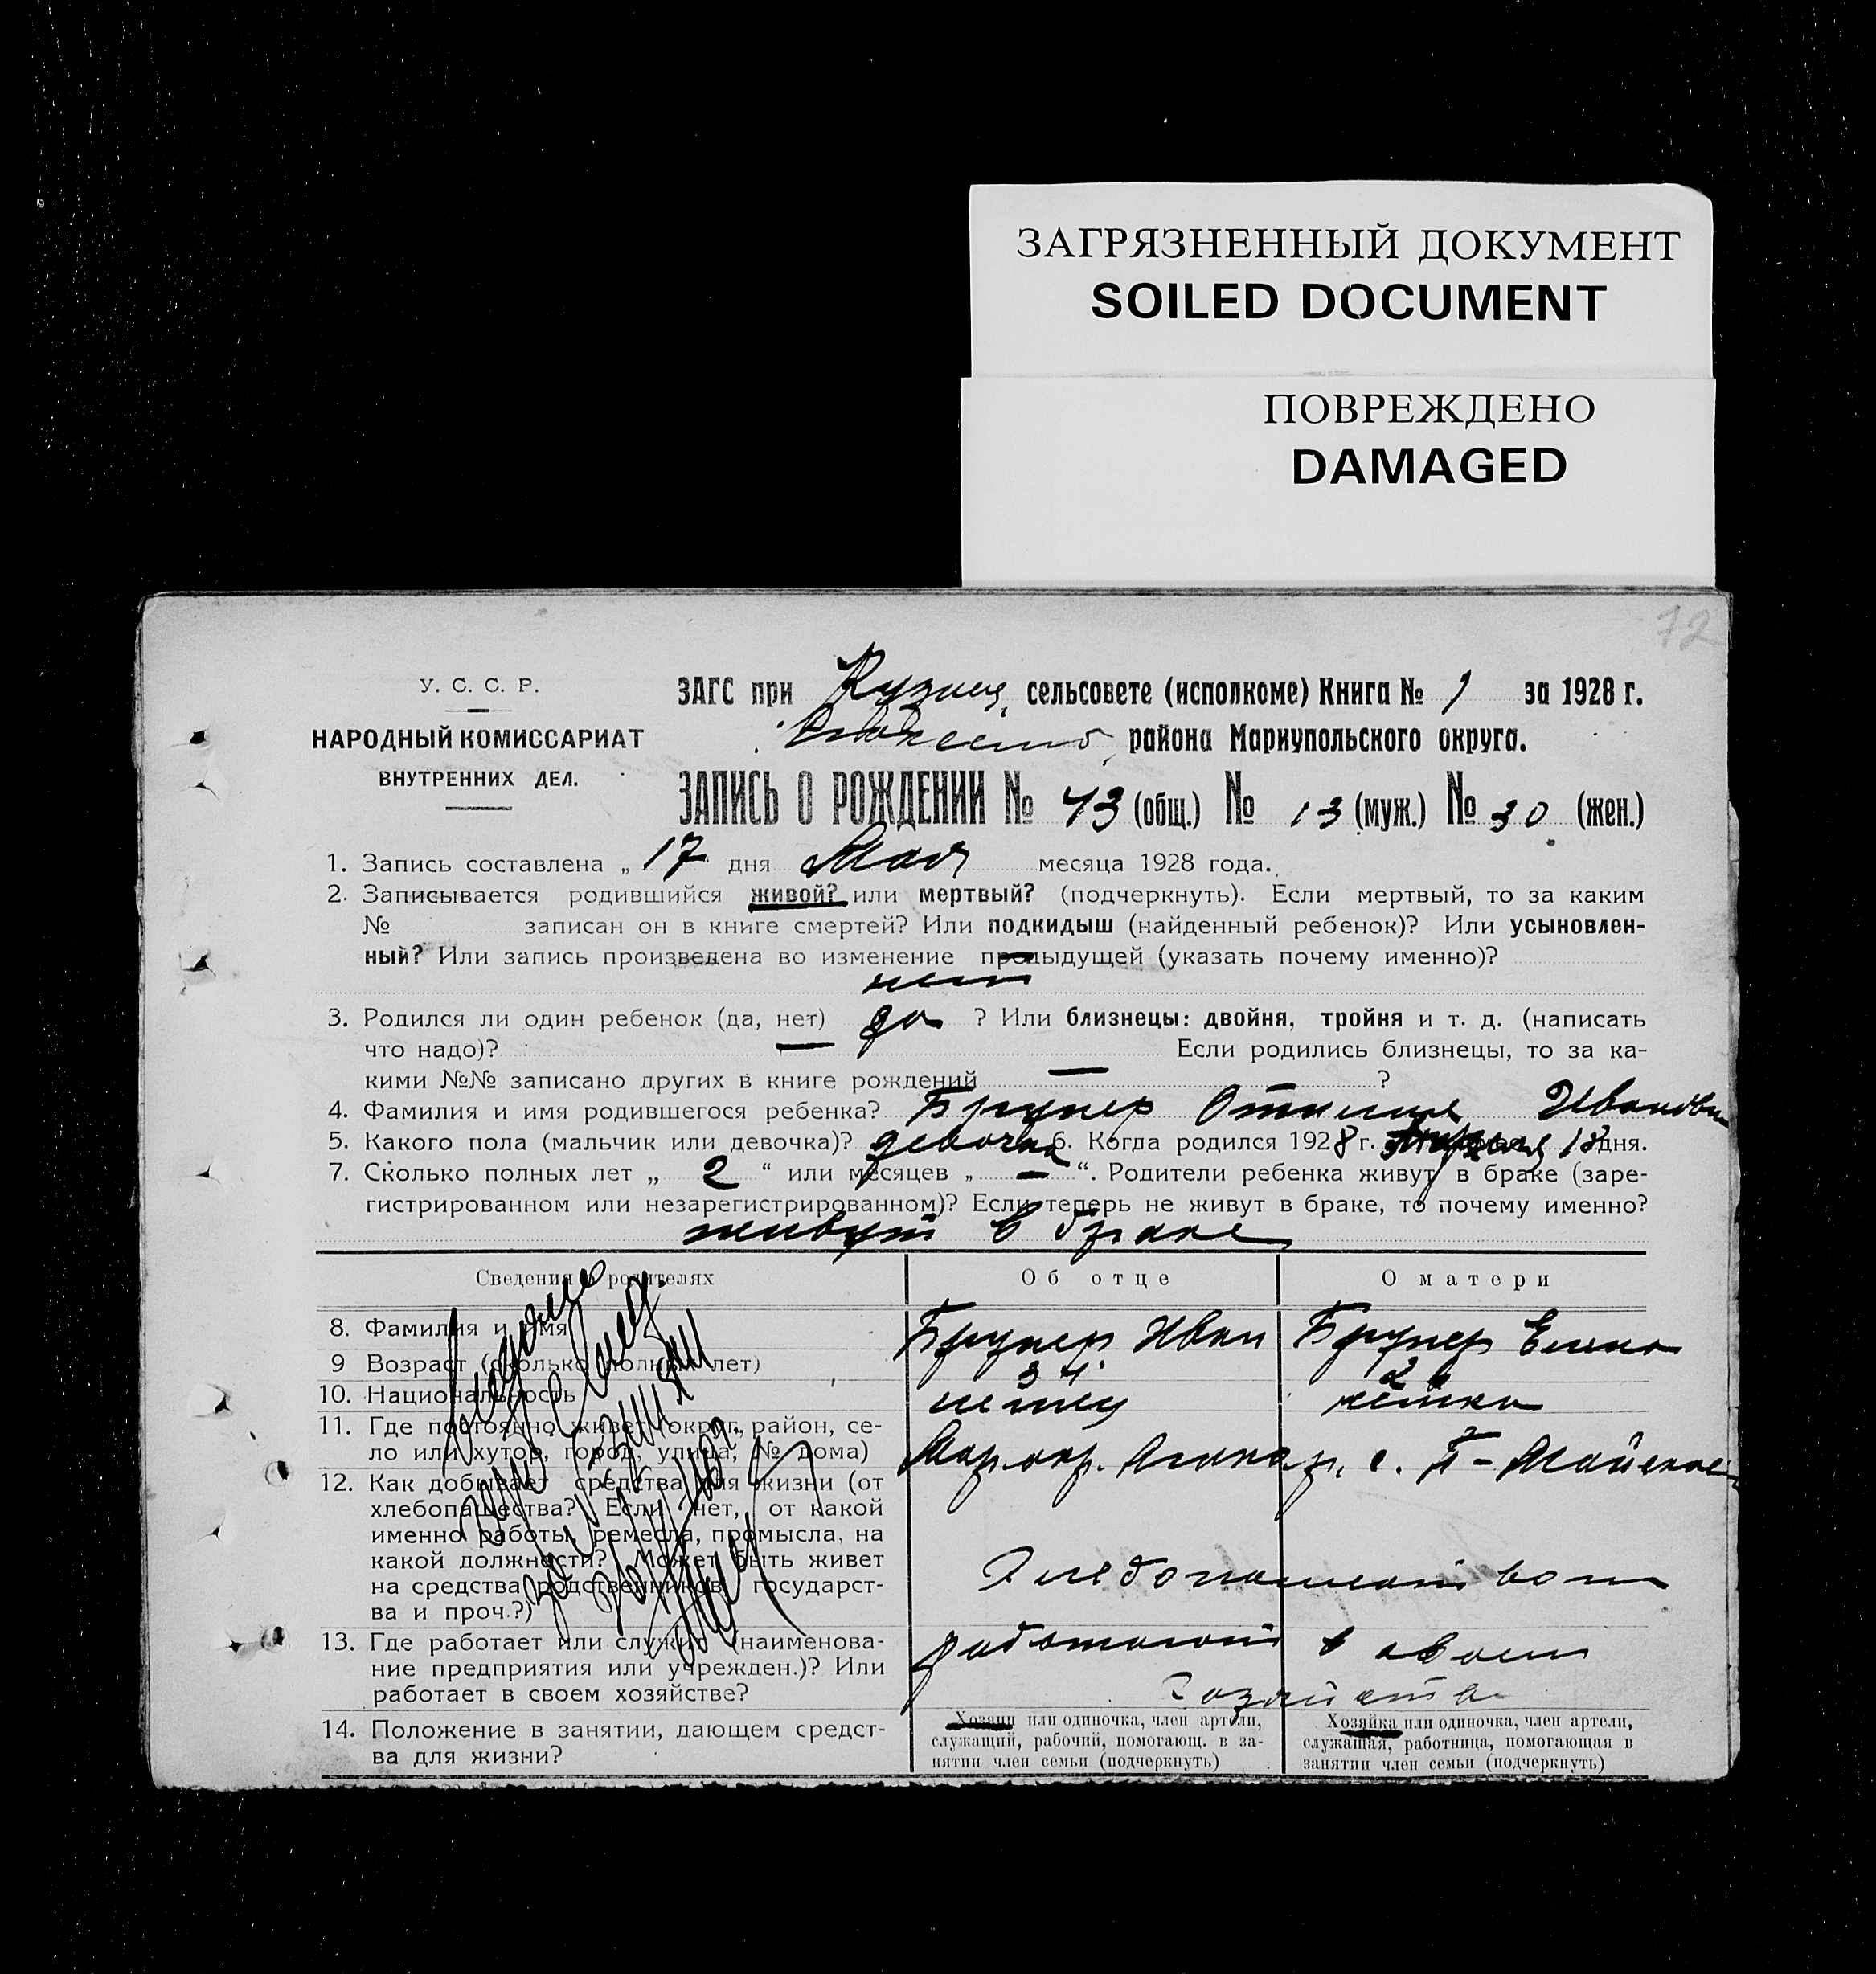 ЗАГРЯЗНЕННЫЙ ДОКУМЕНТ
SOILED DOCUMENT
ПОВРЕЖДЕНО
DAMAGED
72
У. С. С. Р.
НАРОДНЫЙ КОМИССАРИАТ
ВНУТРЕННИХ ДЕЛ.
ЗАГС при Кузнец. сельсовете (исполкоме) Книга № 1 за 1928 г.
района Мариупольского округа.
ЗАПИСЬ О РОЖДЕНИИ № 43 (общ.) № 13 (муж.) № 30 (жен.)
1. Запись составлена „ 17 дня Мая месяца 1928 года.
2. Записывается родившийся живой? или мертвый? (подчеркнуть). Если мертвый, то за каким
№ записан он в книге смертей? Или подкидыш (найденный ребенок)? Или усыновлен-
ный? Или запись произведена во изменение предыдущей (указать почему именно)?
нет
3. Родился ли один ребенок (да, нет) да ? Или близнецы: двойня, тройня и т. д. (написать
что надо)? — Если родились близнецы, то за ка-
кими №№ записано других в книге рождений — ?
4. Фамилия и имя родившегося ребенка? Брунер Ивановн
5. Какого пола (мальчик или девочка)? девочка 6. Когда родился 1928 г. дня.
7. Сколько полных лет „ 2 “ или месяцев „ — “. Родители ребенка живут в браке (заре-
гистрированном или незарегистрированном)? Если теперь не живут в браке, то почему именно?
живут в браке
Сведения о родителях
Об отце
О матери
8. Фамилия и имя
Брунер Иван
Брунер Елена
9 Возраст (сколько полных лет)
10. Национальность
немец
немка
11. Где постоянно живет (округ, район, се-
ло или хутор, город, улица, № дома)
Мар. окр. с. П-Майское
12. Как добывает средства для жизни (от
хлебопашества? Если нет, от какой
именно работы, ремесла, промысла, на
какой должности? Может быть живет
на средства родственников, государст-
ва и проч.?)
Хлебопашеством
13. Где работает или служит (наименова-
ние предприятия или учрежден.)? Или
работает в своем хозяйстве?
работают в своем
хозяйстве
14. Положение в занятии, дающем средст-
ва для жизни?
Хозяин или одиночка, член артели,
служащий, рабочий, помогающ. в за-
нятии член семьи (подчеркнуть)
Хозяйка или одиночка, член артели,
служащая, работница, помогающая в
занятии член семьи (подчеркнуть)